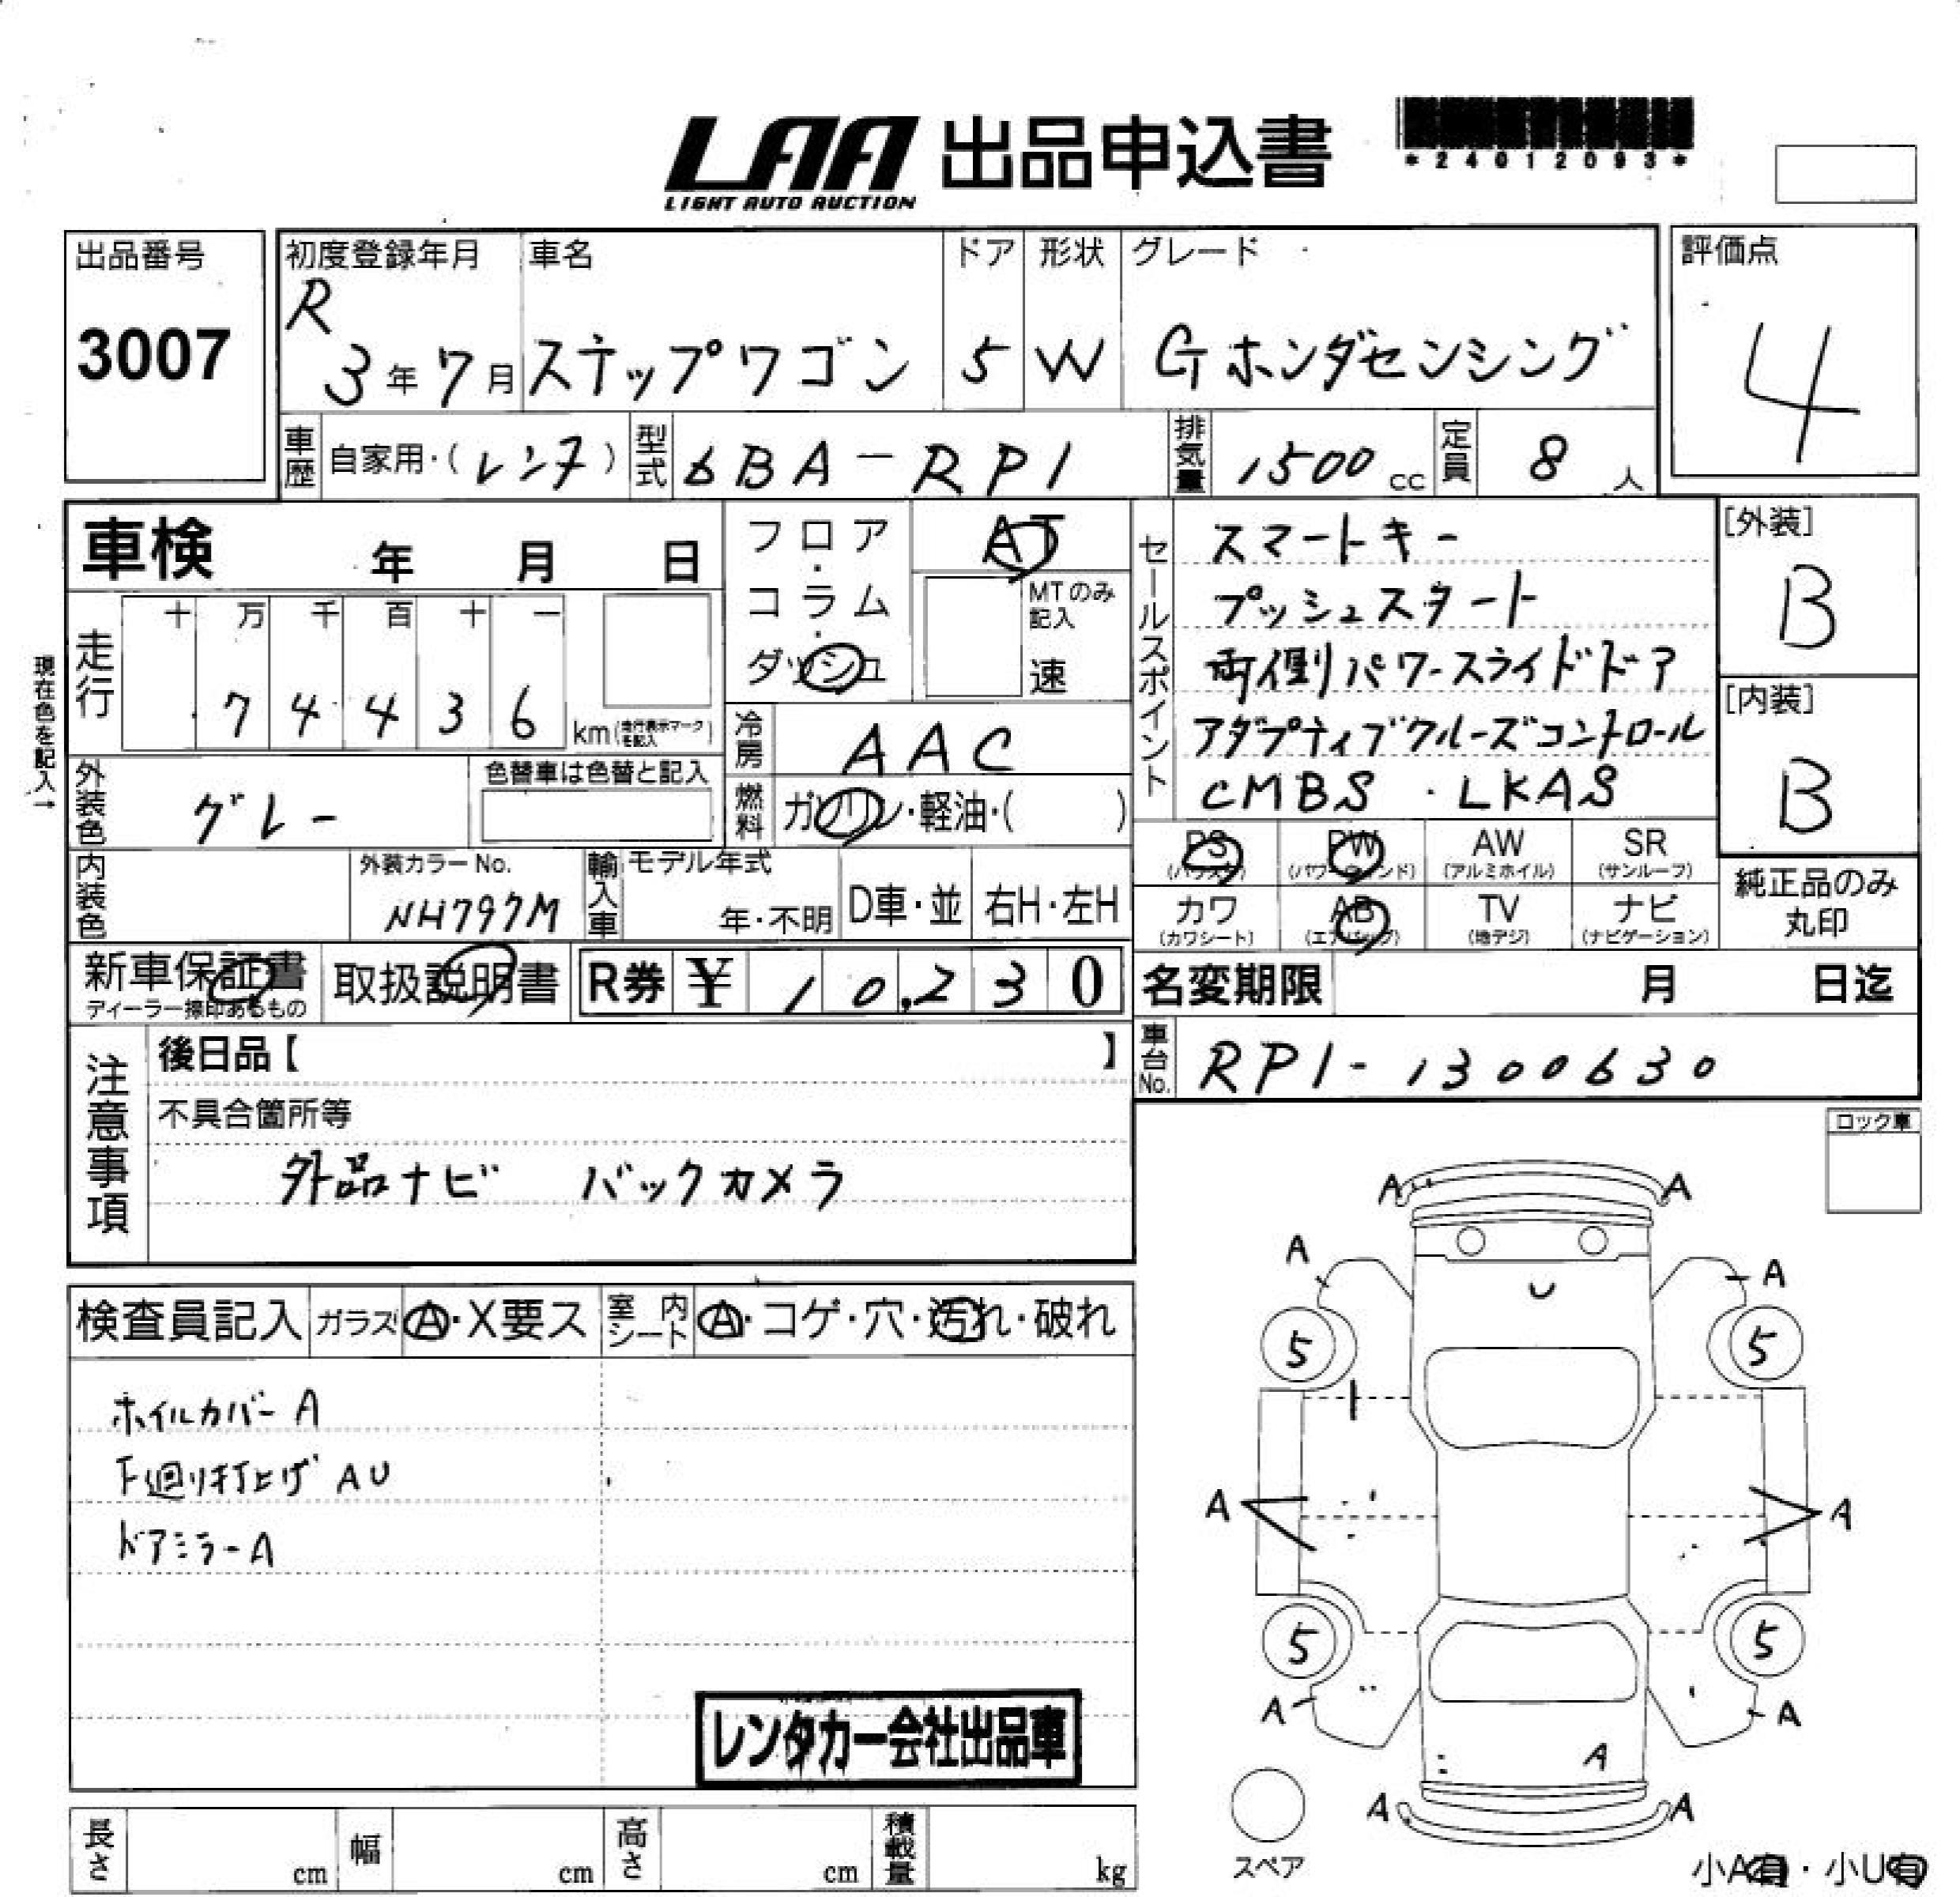 LAA 出品申込書
LIGHT AUTO AUCTION
*24012093*
出品番号
3007
初度登録年月
R
3年7月
車名
ステップワゴン
ドア
5
形状
W
グレード
Gホンダセンシング
評価点
4
車歴 自家用・(レンタ)
型式 6BA-RP1
排気量 1500cc
定員 8人
車検 年 月 日
走行 十 万 千 百 十 一
7 4 4 3 6 km(走行表示マークを記入)
現在色を記入→
外装色 グレー
色替車は色替と記入
内装色
外装カラーNo.
NH797M
フロア・コラム・ダッシュ
AT
MTのみ記入
速
冷房 AAC
燃料 ガソリン・軽油・( )
輸入車 モデル年式
年・不明 D車・並 右H・左H
セールスポイント
スマートキー
プッシュスタート
両側パワースライドドア
アダプティブクルーズコントロール
CMBS・LKAS
[外装]
B
[内装]
B
PS (パワステ)
PW (パワーウィンド)
AW (アルミホイル)
SR (サンルーフ)
カワ (カワシート)
AB (エアバッグ)
TV (地デジ)
ナビ (ナビゲーション)
純正品のみ
丸印
新車保証書
ディーラー捺印あるもの
取扱説明書
R券 ¥ 10,230
名変期限 月 日迄
車台No. RP1-1300630
注意事項
後日品【 】
不具合箇所等
外品ナビ バックカメラ
ロック車
検査員記入 ガラス A・X要ス 室内シート A・コゲ・穴・汚れ・破れ
ホイルカバーA
下廻り打上げAU
ドアミラーA
レンタカー会社出品車
A A
A A
U
5 5
A A
5 5
A A
A
A A
スペア
小A有・小U有
長さ cm 幅 cm 高さ cm 積載量 kg